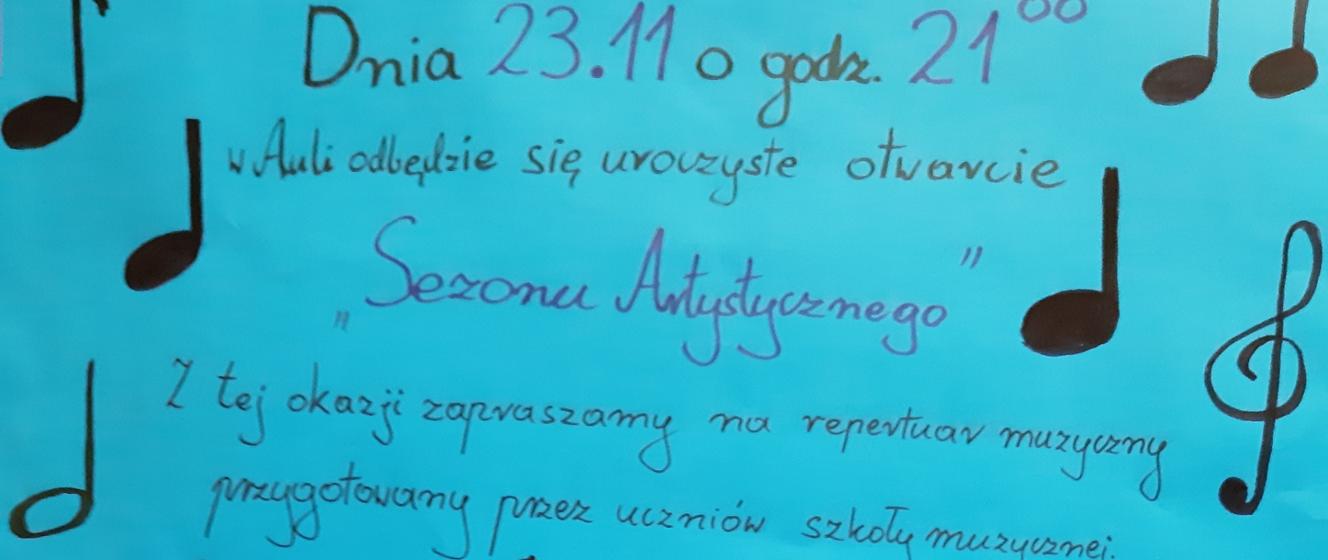 Dnia 23.11 o godz. 21⁰⁰
w Auli odbędzie się uroczyste otwarcie
„Sezonu Artystycznego"
Z tej okazji zapraszamy na repertuar muzyczny
przygotowany przez uczniów szkoły muzycznej.